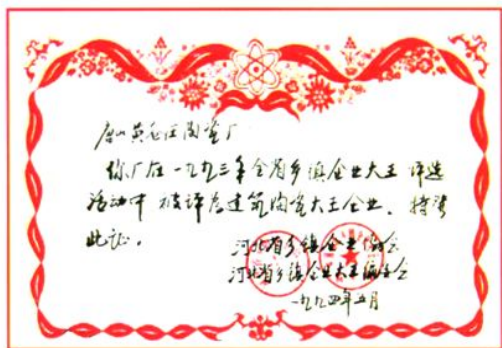 唐山黄各庄陶瓷厂
你厂在一九九三年全省乡镇企业大王评选
活动中 被评为建筑陶瓷大王企业、特发
此证。
河北省乡镇企业协会
河北省乡镇企业大王编委会
一九九四年五月